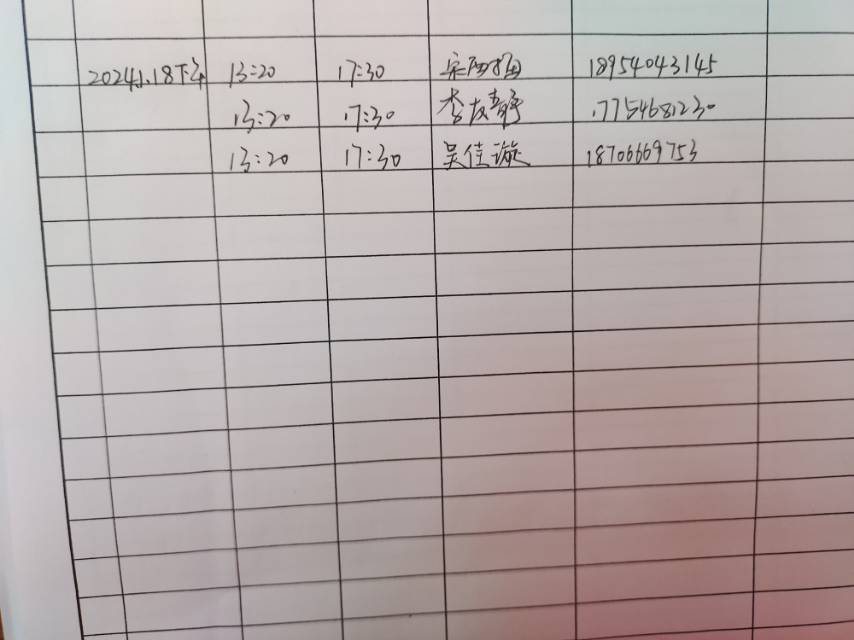 2024.1.18下午 13:20 17:30 18954043145
13:20 17:30 李友静 17754681230
13:20 17:30 吴佳漩 18706669753